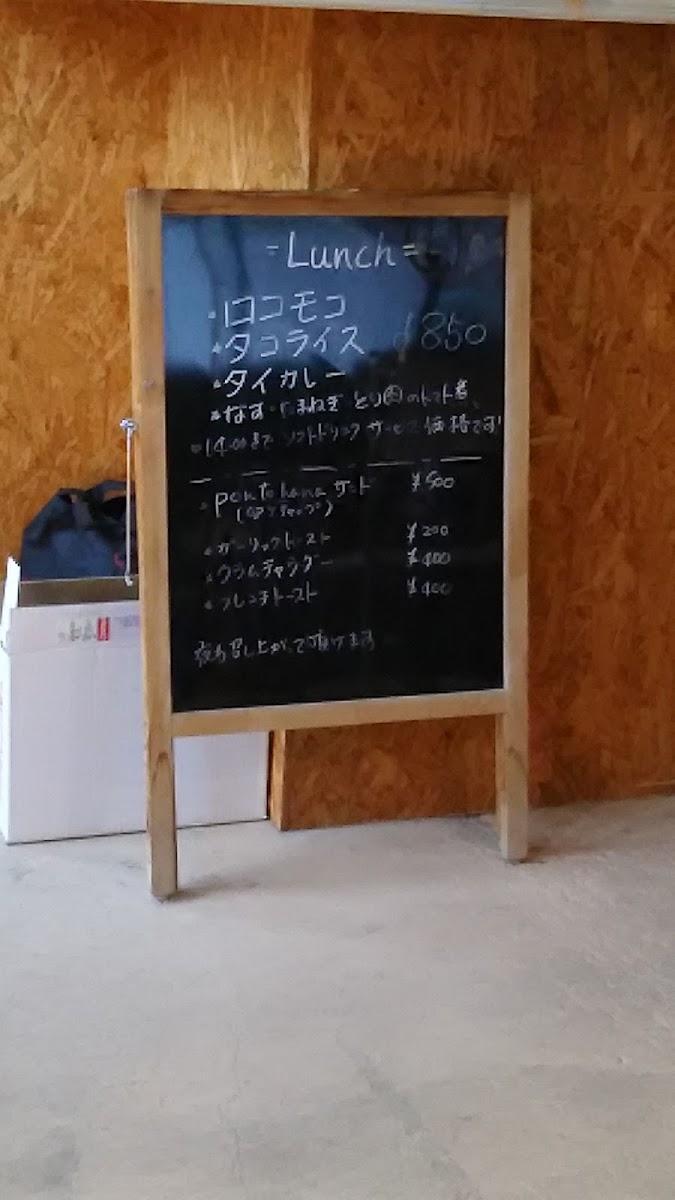 = Lunch =
・ロコモコ
・タコライス ¥850
・タイカレー
・なす・たまねぎ とり肉のトマト煮
※14:00まで ソフトドリンク サービス価格です!
・pontohana サンド ¥500
・ガーリックトースト ¥200
・クラムチャウダー ¥400
・フレンチトースト ¥400
夜も召し上がって頂けます